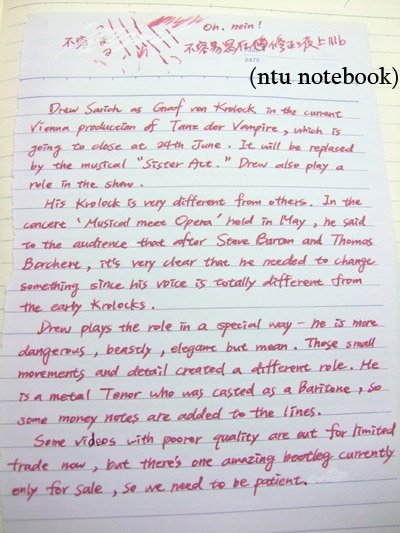 Oh, nein!
不容易 不容易寫在修正液上啦
DATE
(ntu notebook)
Drew Sarich as Graf von Krolock in the current
Vienna production of Tanz der Vampire, which is
going to close at 24th June. It will be replaced
by the musical "Sister Act." Drew also play a
role in the show.
His Krolock is very different from others. In the
concert 'Musical meet Opera' held in May, he said
to the audience that after Steve Barton and Thomas
Borchert, it's very clear that he needed to change
something since his voice is totally different from
the early Krolocks.
Drew plays the role in a special way – he is more
dangerous, beastly, elegant but mean. Those small
movements and detail created a different role. He
is a metal Tenor who was casted as a Baritone, so
some money notes are added to the lines.
Some videos with poorer quality are out for limited
trade now, but there's one amazing bootleg currently
only for sale, so we need to be patient.